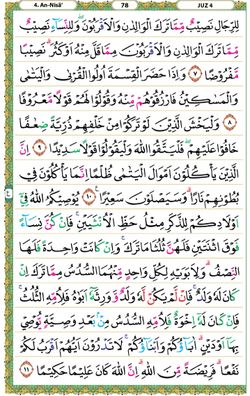 4. An-Nisâ'
78
JUZ 4
لِلرِّجَالِ نَصِيْبٌ مِّمَّا تَرَكَ الْوَالِدٰنِ وَالْاَقْرَبُوْنَ وَلِلنِّسَاۤءِ نَصِيْبٌ
مِّمَّا تَرَكَ الْوَالِدٰنِ وَالْاَقْرَبُوْنَ مِمَّا قَلَّ مِنْهُ اَوْ كَثُرَ نَصِيْبًا
مَّفْرُوْضًا ٧ وَاِذَا حَضَرَ الْقِسْمَةَ اُولُوا الْقُرْبٰى وَالْيَتٰمٰى
وَالْمَسٰكِيْنُ فَارْزُقُوْهُمْ مِّنْهُ وَقُوْلُوْا لَهُمْ قَوْلًا مَّعْرُوْفًا
٨ وَلْيَخْشَ الَّذِيْنَ لَوْ تَرَكُوْا مِنْ خَلْفِهِمْ ذُرِّيَّةً ضِعٰفًا
خَافُوْا عَلَيْهِمْ فَلْيَتَّقُوا اللّٰهَ وَلْيَقُوْلُوْا قَوْلًا سَدِيْدًا ٩ اِنَّ
الَّذِيْنَ يَأْكُلُوْنَ اَمْوَالَ الْيَتٰمٰى ظُلْمًا اِنَّمَا يَأْكُلُوْنَ فِيْ
بُطُوْنِهِمْ نَارًا وَسَيَصْلَوْنَ سَعِيْرًا ١٠ يُوْصِيْكُمُ اللّٰهُ فِيْٓ
اَوْلَادِكُمْ لِلذَّكَرِ مِثْلُ حَظِّ الْاُنْثَيَيْنِ فَاِنْ كُنَّ نِسَاۤءً
فَوْقَ اثْنَتَيْنِ فَلَهُنَّ ثُلُثَا مَا تَرَكَ وَاِنْ كَانَتْ وَاحِدَةً فَلَهَا
النِّصْفُ وَلِاَبَوَيْهِ لِكُلِّ وَاحِدٍ مِّنْهُمَا السُّدُسُ مِمَّا تَرَكَ اِنْ
كَانَ لَهٗ وَلَدٌ فَاِنْ لَّمْ يَكُنْ لَّهٗ وَلَدٌ وَّوَرِثَهٗٓ اَبَوٰهُ فَلِاُمِّهِ الثُّلُثُ
فَاِنْ كَانَ لَهٗٓ اِخْوَةٌ فَلِاُمِّهِ السُّدُسُ مِنْۢ بَعْدِ وَصِيَّةٍ يُّوْصِيْ
بِهَآ اَوْ دَيْنٍ اٰبَاۤؤُكُمْ وَاَبْنَاۤؤُكُمْ لَا تَدْرُوْنَ اَيُّهُمْ اَقْرَبُ لَكُمْ
نَفْعًا فَرِيْضَةً مِّنَ اللّٰهِ اِنَّ اللّٰهَ كَانَ عَلِيْمًا حَكِيْمًا ١١